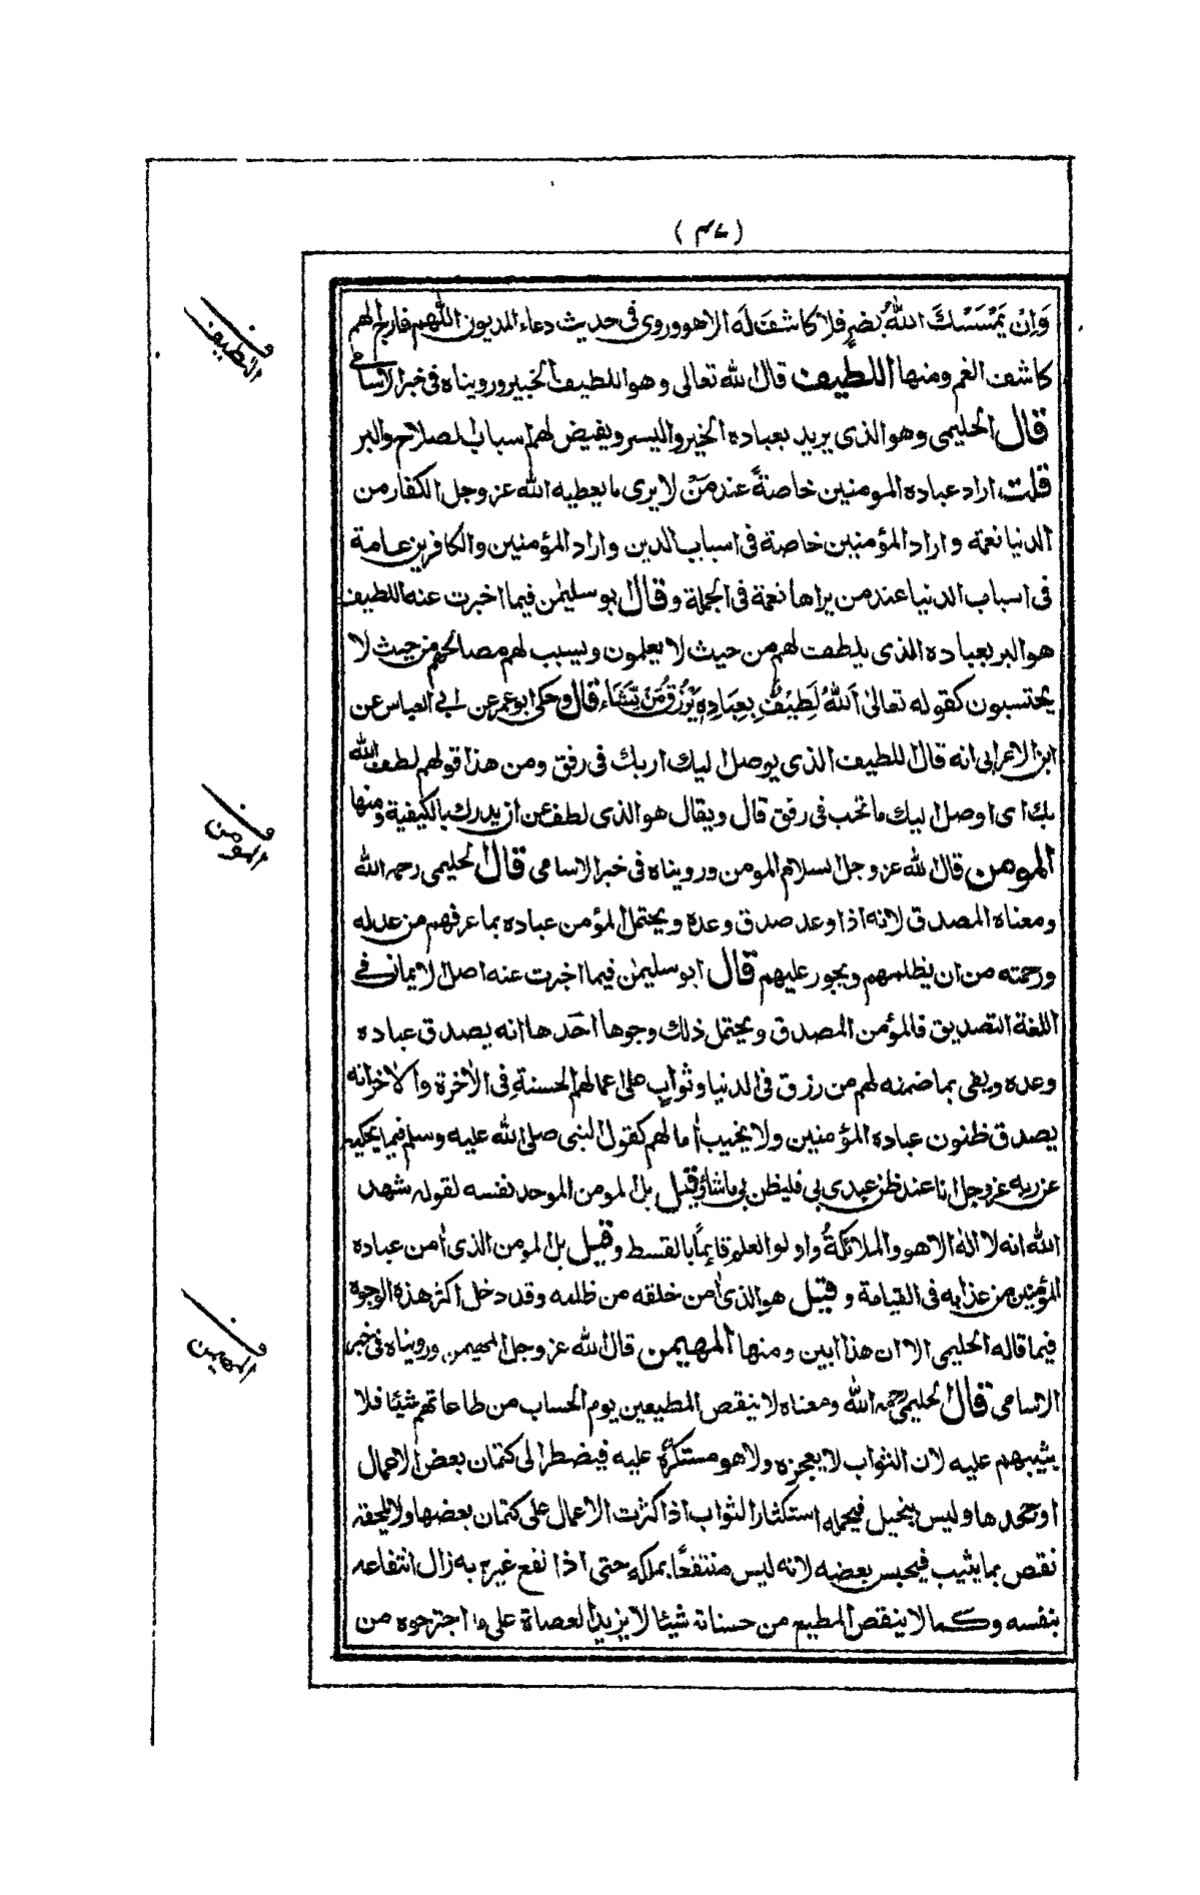 (۴۷)
وَاِنْ يَمْسَسْكَ اللّٰهُ بِضُرٍ فلا كاشفَ لَه الا هو وروى فى حديث دعاء المديون اللّٰهم فارج الهم
كاشف الغم ومنها اللطيف قال الله تعالى وهو اللطيف الخبير ورويناه فى خبر الاسامى
قال الحليمى وهو الذى يريد بعباده الخير واليسر ويفيض لهم اسباب الصلاح والبر
قلت اراد عباده المومنين خاصةً عند مَنْ لا يرى ما يعطيه الله عز وجل الكفار من
الدنيا نعمة واراد المؤمنين خاصة فى اسباب الدين واراد المؤمنين والكافرين عامة
فى اسباب الدنيا عند من يراها نعمة فى الجملة وقال ابو سليمٰن فيما اخبرت عنه اللطيف
هو البر بعباده الذى يلطف لهم من حيث لا يعلمون ويسبب لهم مصالحهم من حيث لا
يحتسبون كقوله تعالىٰ اَللّٰهُ لَطِيْفٌ بِعِبَادِهٖ يَرْزُقُ مَنْ يَّشَاء قال وحكى ابو عمر عن ابى العباس عن
ابن الاعرابى انه قال اللطيف الذى يوصل اليك اربك فى رفق ومن هذا قولهم لطف الله
بك اى اوصل اليك ما تحب فى رفق قال ويقال هو الذى لطف عن ان يدرك بالكيفية ومنها
المومن قال الله عز وجل السلام المومن ورويناه فى خبر الاسامى قال الحليمى رحمه الله
ومعناه المصدق لانه اذا وعد صدق وعده ويحتمل المؤمن عباده بما عرفهم من عدله
ورحمته من ان يظلمهم ويجور عليهم قال ابو سليمٰن فيما اخبرت عنه اصل الايمان فى
اللغة التصديق فالمؤمن المصدق ويحتمل ذلك وجوها احَدها انه يصدق عباده
وعده ويفى بما ضمنه لهم من رزق فى الدنيا وثوابٍ على اعمالهم الحسنةِ فى الاٰخرة والاٰخر انه
يصدق ظنون عباده المؤمنين ولا يخيب اٰمالهم كقول النبى صلى الله عليه وسلم فيما يحكيه
عن ربه عز وجل انا عند ظن عبدى بى فليظن بى ما شاء وقيل بل المومن الموحد نفسه لقوله شهد
الله انه لا اله الا هو والملائكةُ واولو العلم قائماً بالقسط وقيل بل المومن الذى اٰمن عباده
المؤمنين من عذابه فى القيامة وقيل هو الذى اٰمن خلقه من ظلمه وقد دخل اكثر هذه الوجوه
فيما قاله الحليمى الا ان هذا ابين ومنها المهيمن قال الله عز وجل المهيمن ورويناه فى خبر
الاسامى قال الحليمى رحمه الله ومعناه لا ينقص المطيعين يوم الحساب من طاعاتهم شيئا فلا
يثيبهم عليه لان الثواب لا يعجزه ولا هو مستكرَهٌ عليه فيضطر الى كتمان بعض الاعمال
او جحدها وليس ببخيل فيحمله استكثار الثواب اذا كثرت الاعمال على كتمان بعضها ولا يلحقه
نقص بما يثيب فيحبس بعضه لانه ليس منتفعًا بملكه حتى اذا نفع غيره به زال انتفاعه
بنفسه وكما لا ينقص المطيع من حسناته شيئا لا يزيد العصاة على ما اجترحوه من
اللطيف
المومن
المهيمن